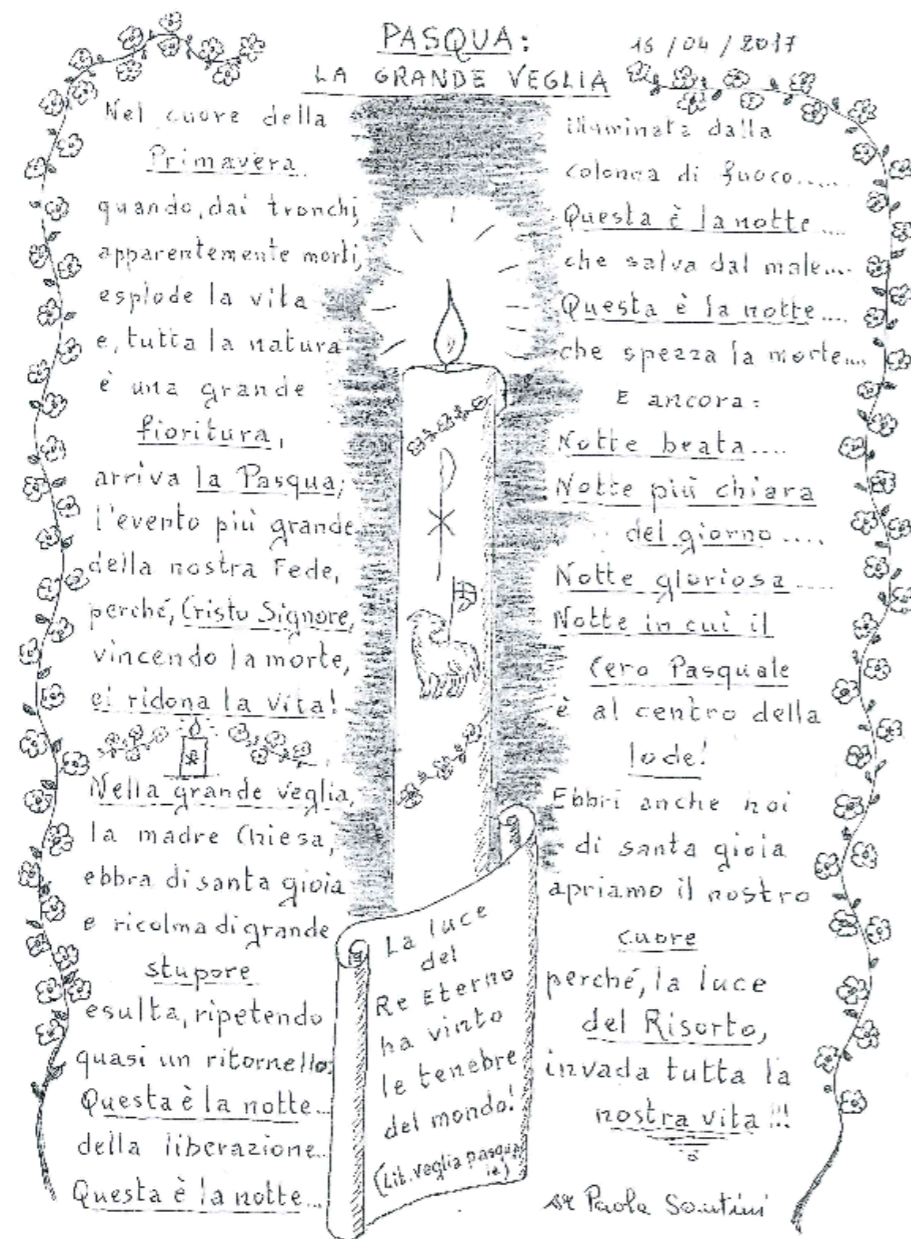 PASQUA:
16/04/2017
LA GRANDE VEGLIA
Nel cuore della
Primavera
quando, dai tronchi,
apparentemente morti,
esplode la vita
e, tutta la natura
è una grande
fioritura,
arriva la Pasqua;
l'evento più grande
della nostra Fede,
perché, Cristo Signore,
vincendo la morte,
ci ridona la vita!
Nella grande veglia,
la madre Chiesa,
ebbra di santa gioia
e ricolma di grande
stupore
esulta, ripetendo
quasi un ritornello:
Questa è la notte...
della liberazione...
Questa è la notte...
illuminata dalla
colonna di fuoco.....
Questa è la notte....
che salva dal male...
Questa è la notte....
che spezza la morte...
E ancora:
Notte beata....
Notte più chiara
del giorno....
Notte gloriosa....
Notte in cui il
Cero Pasquale
è al centro della
lode!
Ebbri anche noi
di santa gioia
apriamo il nostro
cuore
perché, la luce
del Risorto,
invada tutta la
nostra vita!!!
La luce
del
Re Eterno
ha vinto
le tenebre
del mondo!
(Lit. Veglia pasqua
le)
sr Paola Santini